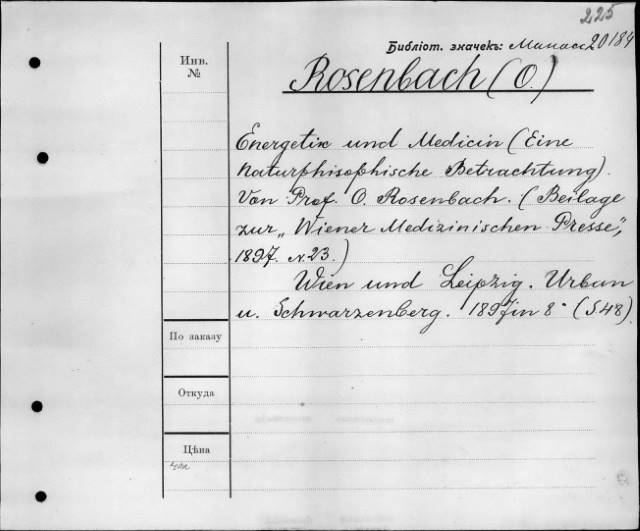 225
Библіот. значекъ: Манасс 20184
Инв.
№
Rosenbach (O.)
Energetik und Medicin (Eine
Naturphisophische Betrachtung).
Von Prof. O. Rosenbach. (Beilage
zur „Wiener Medizinischen Presse",
1897. N. 23.)
Wien und Leipzig. Urban
u. Schwarzenberg. 1897 in 8° (S 48).
По заказу
Откуда
Цѣна